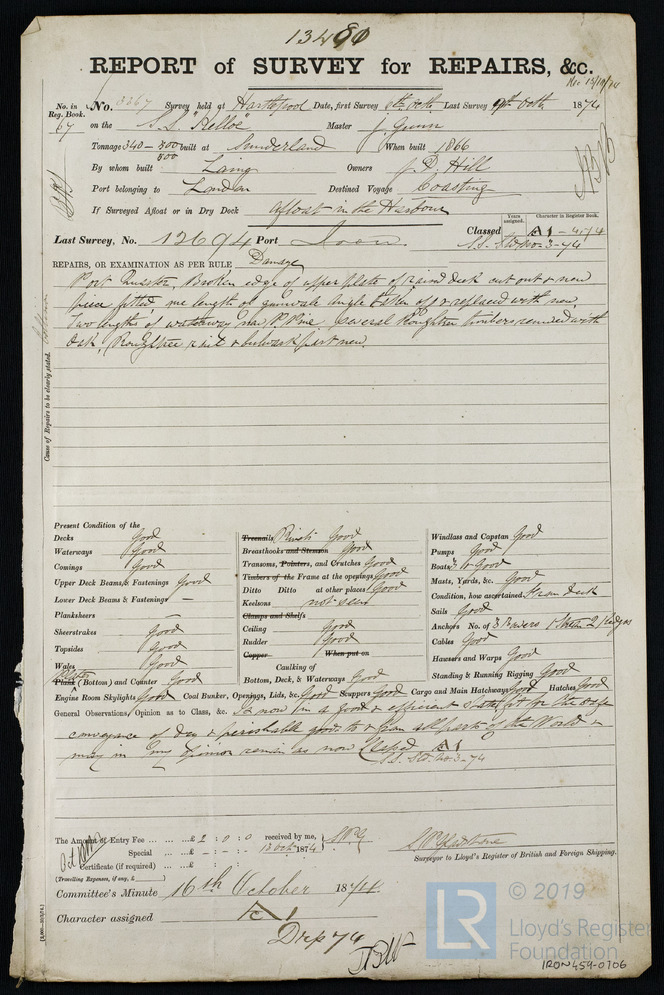 13480
REPORT of SURVEY for REPAIRS, &c.
Rec 15/10/74
No. in Reg. Book. No. 3267 Survey held at Hartlepool Date, first Survey 6th Octr. Last Survey 9th Octr. 1874
67 on the S.S. Master J. Gunn
Tonnage 340 - 500 built at Sunderland When built 1866
500
By whom built Laing Owners J. D. Hill
Port belonging to London Destined Voyage Coasting
If Surveyed Afloat or in Dry Dock Afloat in the Harbour
Years assigned. Character in Register Book.
Last Survey, No. 12694 Port Iron. Classed A1 - 4/74
S.S. No. 3-74
REPAIRS, OR EXAMINATION AS PER RULE Damage
Port Quarter, Broken edge of upper plate of raised deck cut out & new
piece fitted, one length of gunwale angle taken off & replaced with new,
Two lengths of waterway new P. Pine, several Roughtree timbers renewed with
Oak, Roughtree rail & bulwark part new.
Cause of Repairs to be clearly stated. Collision
Present Condition of the
Decks Good
Waterways Good
Comings Good
Upper Deck Beams & Fastenings Good
Lower Deck Beams & Fastenings —
Planksheers —
Sheerstrakes Good
Topsides Good
Wales Good
Plates
Plank (Bottom) and Counter Good
Treenails Rivets Good
Breasthooks and Stemson Good
Transoms, Pointers, and Crutches Good
Timbers of the Frame at the openings Good
Ditto Ditto at other places Good
Keelsons not seen
Clamps and Shelfs
Ceiling Good
Rudder Good
Copper When put on
Caulking of
Bottom, Deck, & Waterways Good
Windlass and Capstan Good
Pumps Good
Boats 3 Good
Masts, Yards, &c. Good
Condition, how ascertained From deck
Sails Good
Anchors No. of 3 Bowers 1 Stream 2 Kedges
Cables Good
Hawsers and Warps Good
Standing & Running Rigging Good
Engine Room Skylights Good Coal Bunker, Openings, Lids, &c. Good Scuppers Good Cargo and Main Hatchways Good Hatches Good
General Observations, Opinion as to Class, &c. Is now in a good & efficient state, fit for the safe
conveyance of dry & perishable goods to & from all parts of the World &
may in my opinion remain as now Classed A1
S.S. No. 3-74
The Amount of Entry Fee ... ... ...£ 2 : 0 : 0 received by me,
Special ... ...£ - : - : 13 Oct 1874
Certificate (if required) ... ...£ :
(Travelling Expenses, if any, £ )
Surveyor to Lloyd's Register of British and Foreign Shipping.
Committee's Minute 16th October 1874
Character assigned A1
© 2019
LR Lloyd's Register
Foundation
IRON459-0706